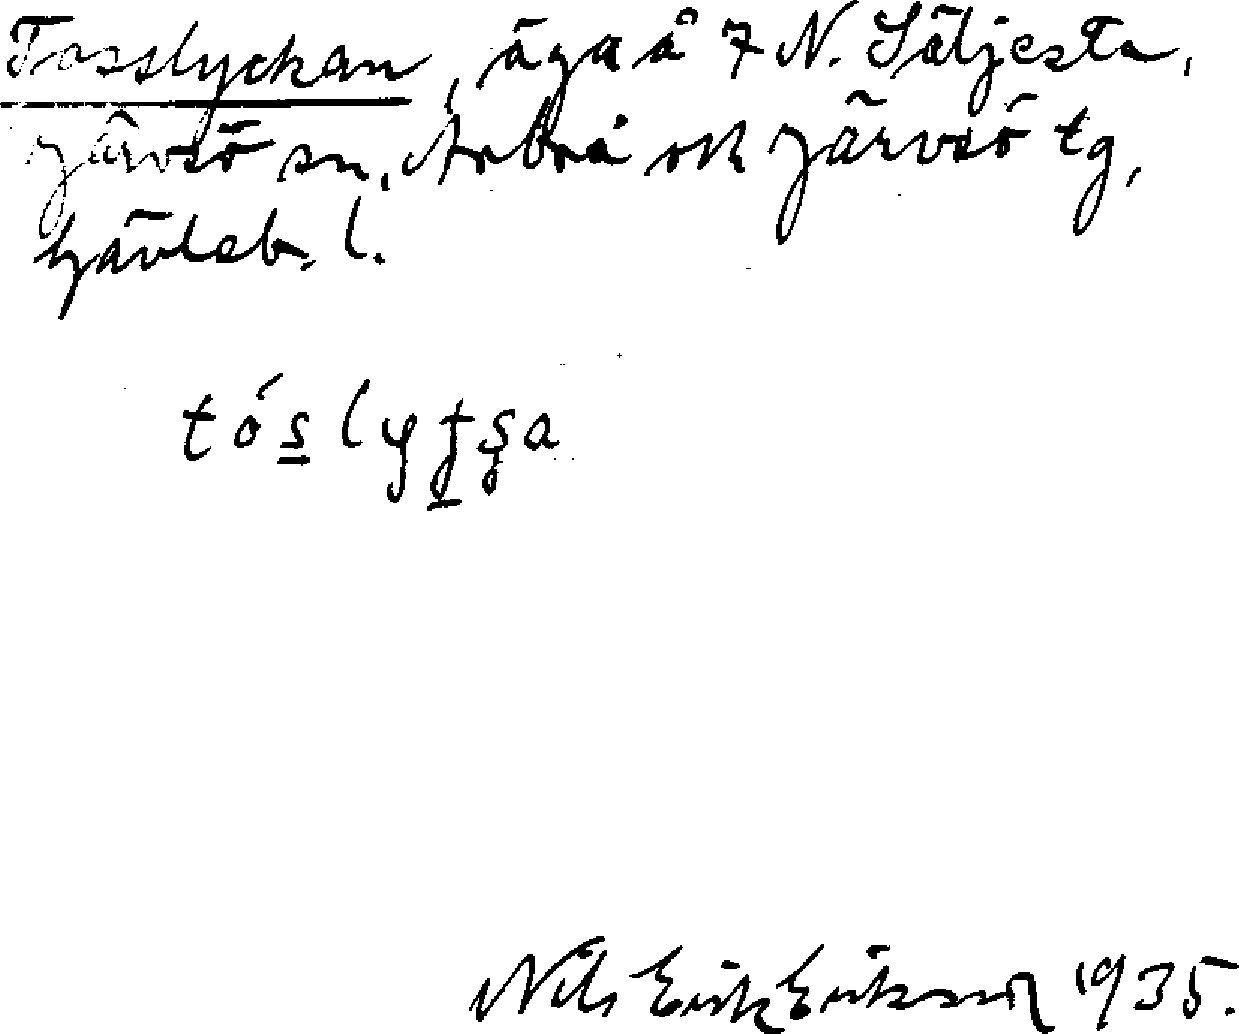 Tosslyckan, äga å 7 N. Säljesta,
Järvsö sn, Arbrå ock Järvsö tg,
Gävleb. l.
tóslyțșa
Nils Erik Eriksson 1935.